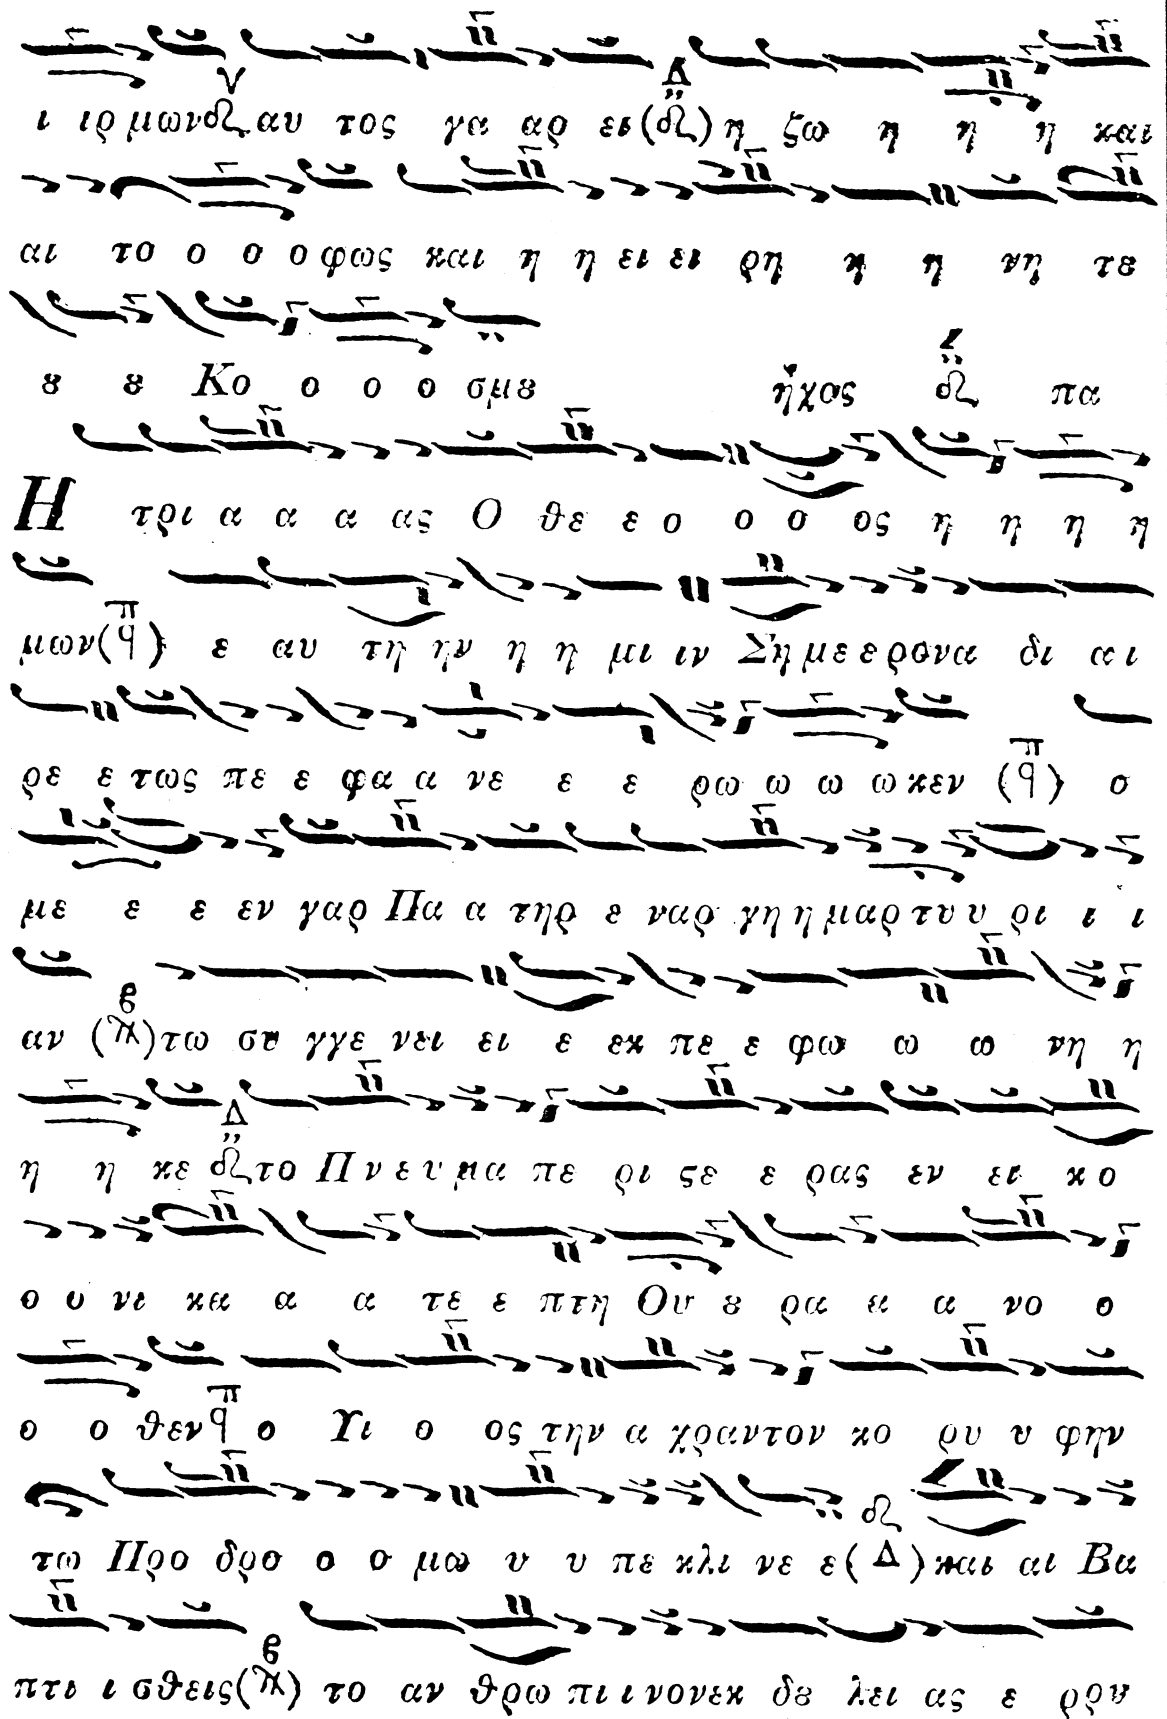 ι ιρ μων αυ τος γα αρ ει η ζω η η η και
αι το ο ο ο φως και η η ει ει ρη η η νη τȣ
ȣ ȣ Κο ο ο ο σμȣ ἦχος πα
Η τρι α α α ας Ο θε ε ο ο ο ος η η η η
μων(π) ε αυ τη ην η η μι ιν Ση με ε ρον α δι αι
ρε ε τως πε ε φα α νε ε ε ρω ω ω ω κεν (π) ο
με ε ε εν γαρ Πα α τηρ ε ναρ γη η μαρ τυ υ ρι ι ι
αν τω συ γγε νει ει ε εκ πε ε φω ω ω νη η
η η κε Δ το Πνευμα πε ρι ςε ε ρας εν ει κο
ο υ νι κα α α τε ε πτη Ου ȣ ρα α α νο ο
ο ο θεν π ο Υι ο ος την α χραντον κο ρυ υ φην
τω Προ δρο ο ο μω υ υ πε κλι νε ε(Δ) και αι Βα
πτι ι σθεις το αν θρω πι ι νον εκ δȣ λει ας ε ρρυ